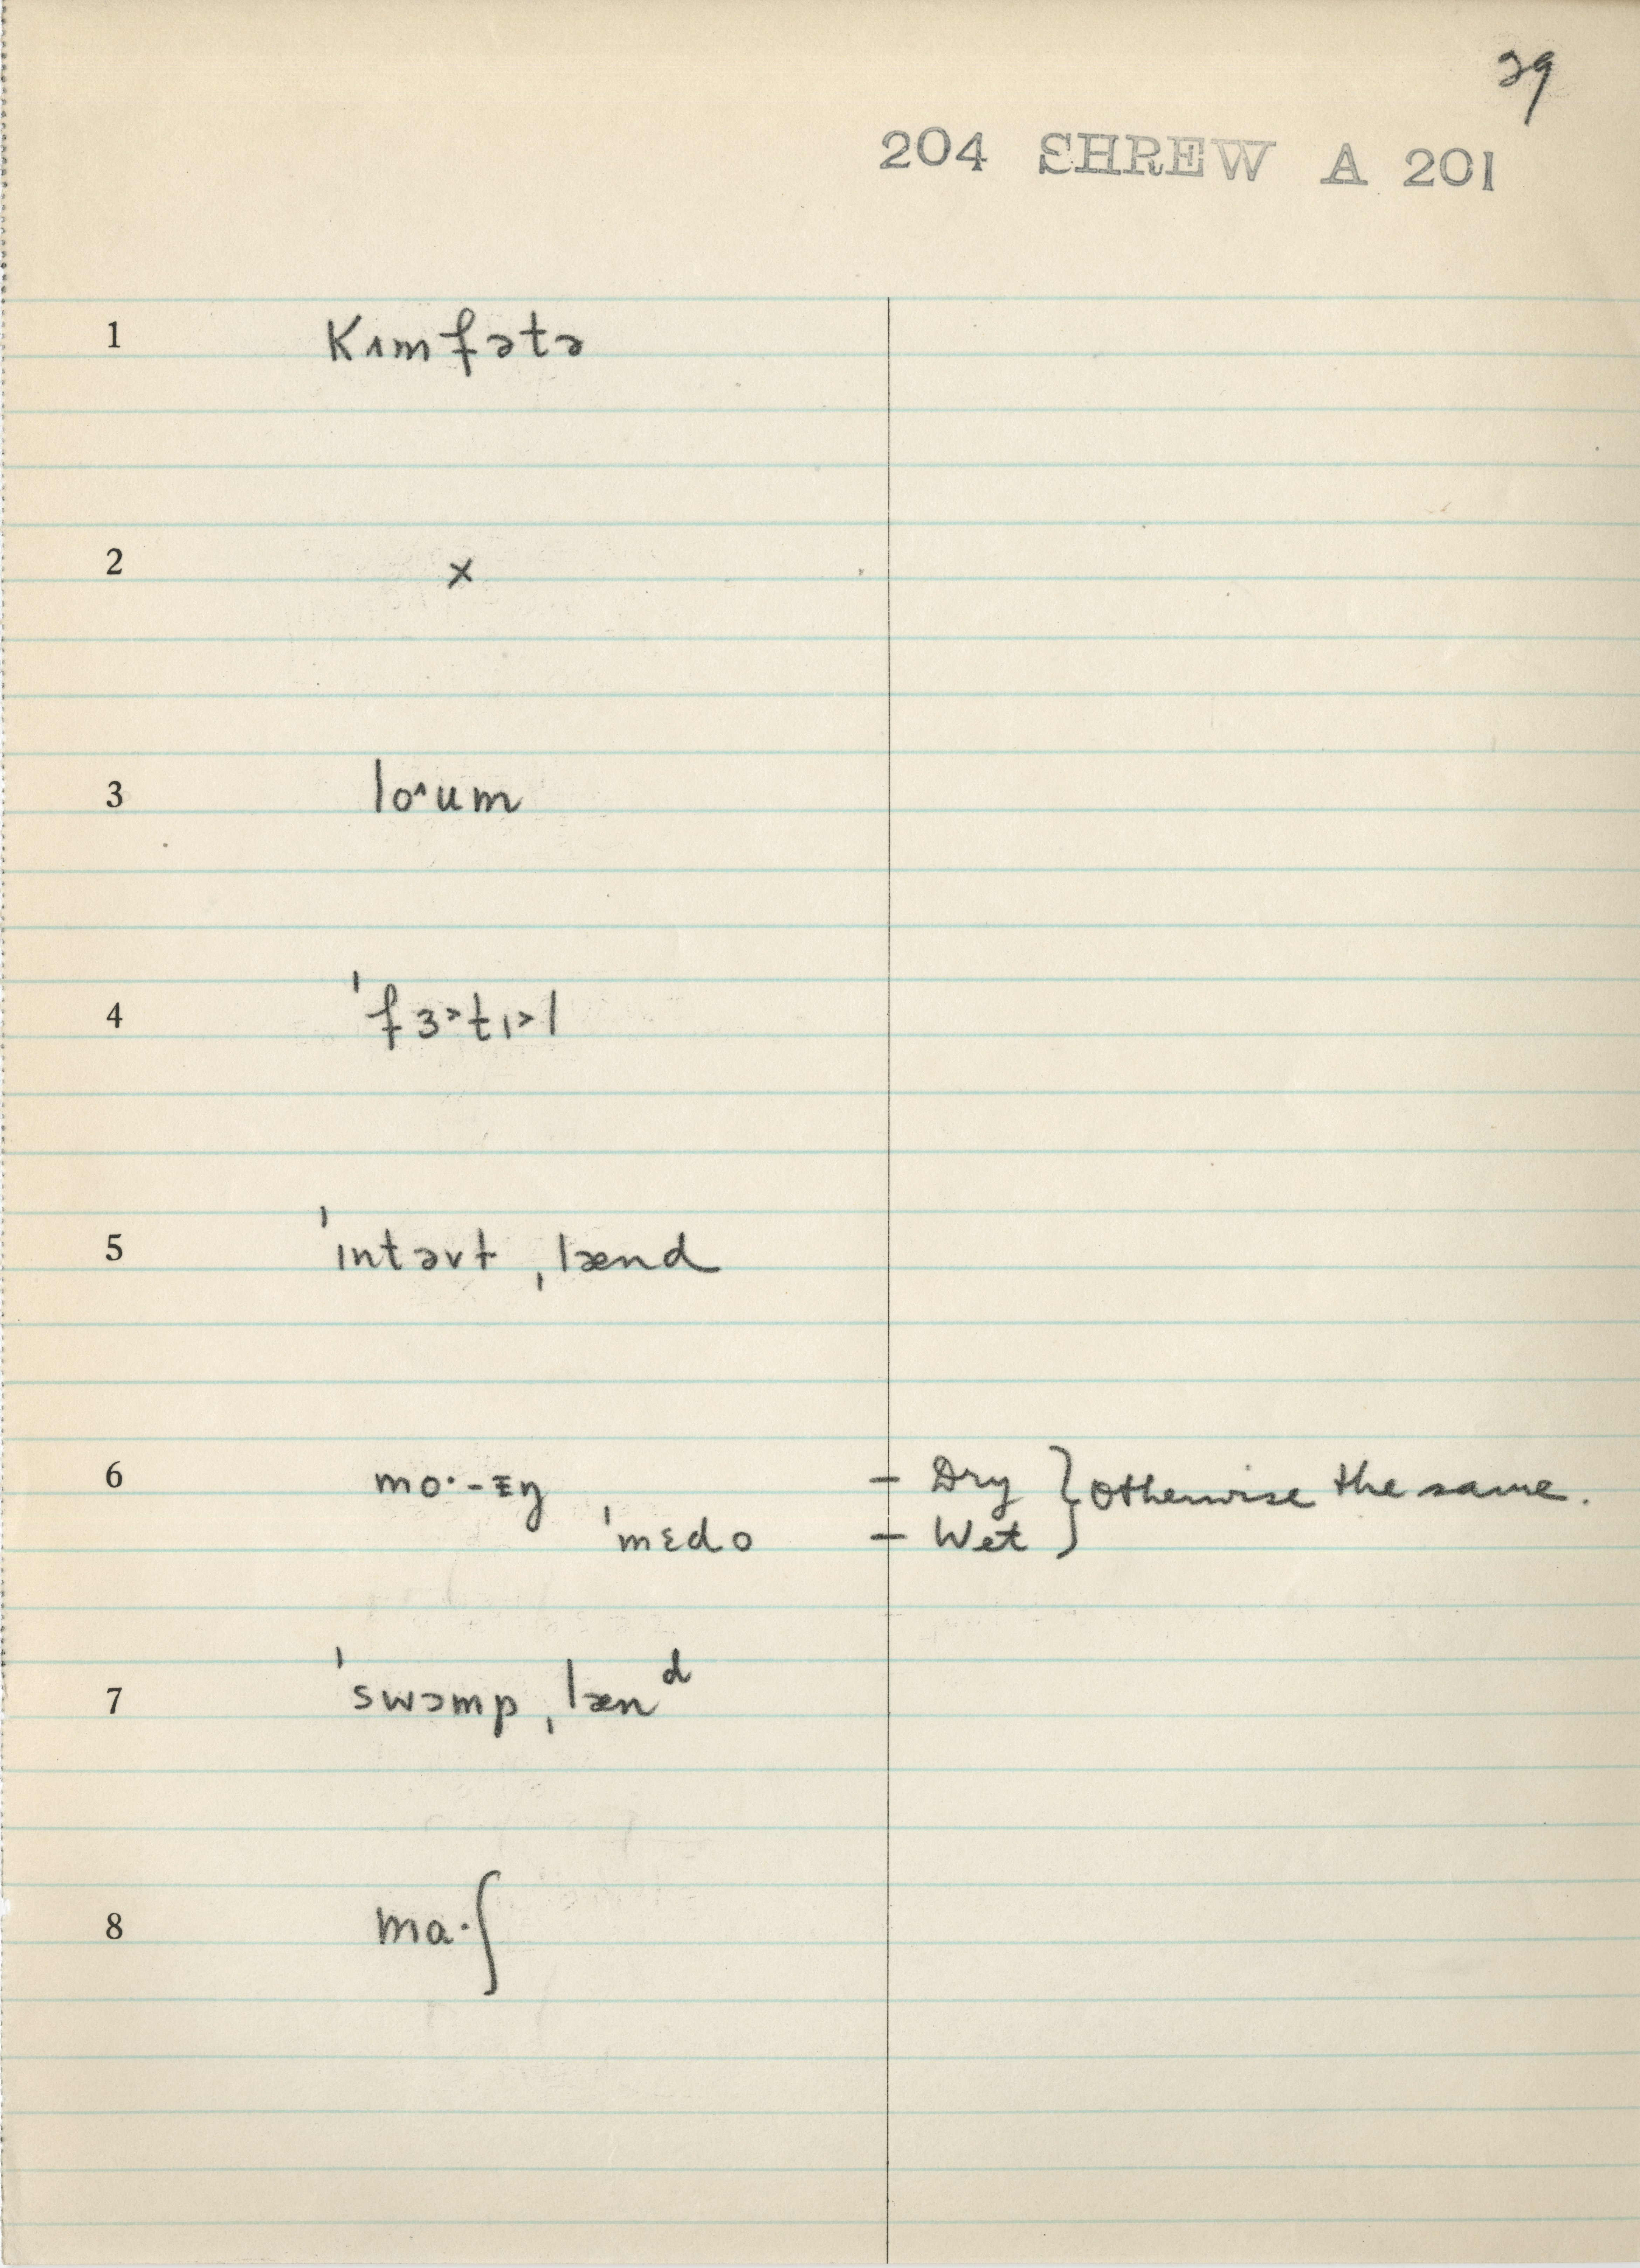 29
204 SHREW A 201
1 kɪmfətə
2 x
3 lo^um
4 ˈfɜ˃tɪ˃l
5 ˈɪntəvt ˌlænd
6 mo·-ɪŋ – Dry } otherwise the same.
ˈmɛdo – Wet
7 ˈswɔmp ˌlænᵈ
8 ma·ʃ